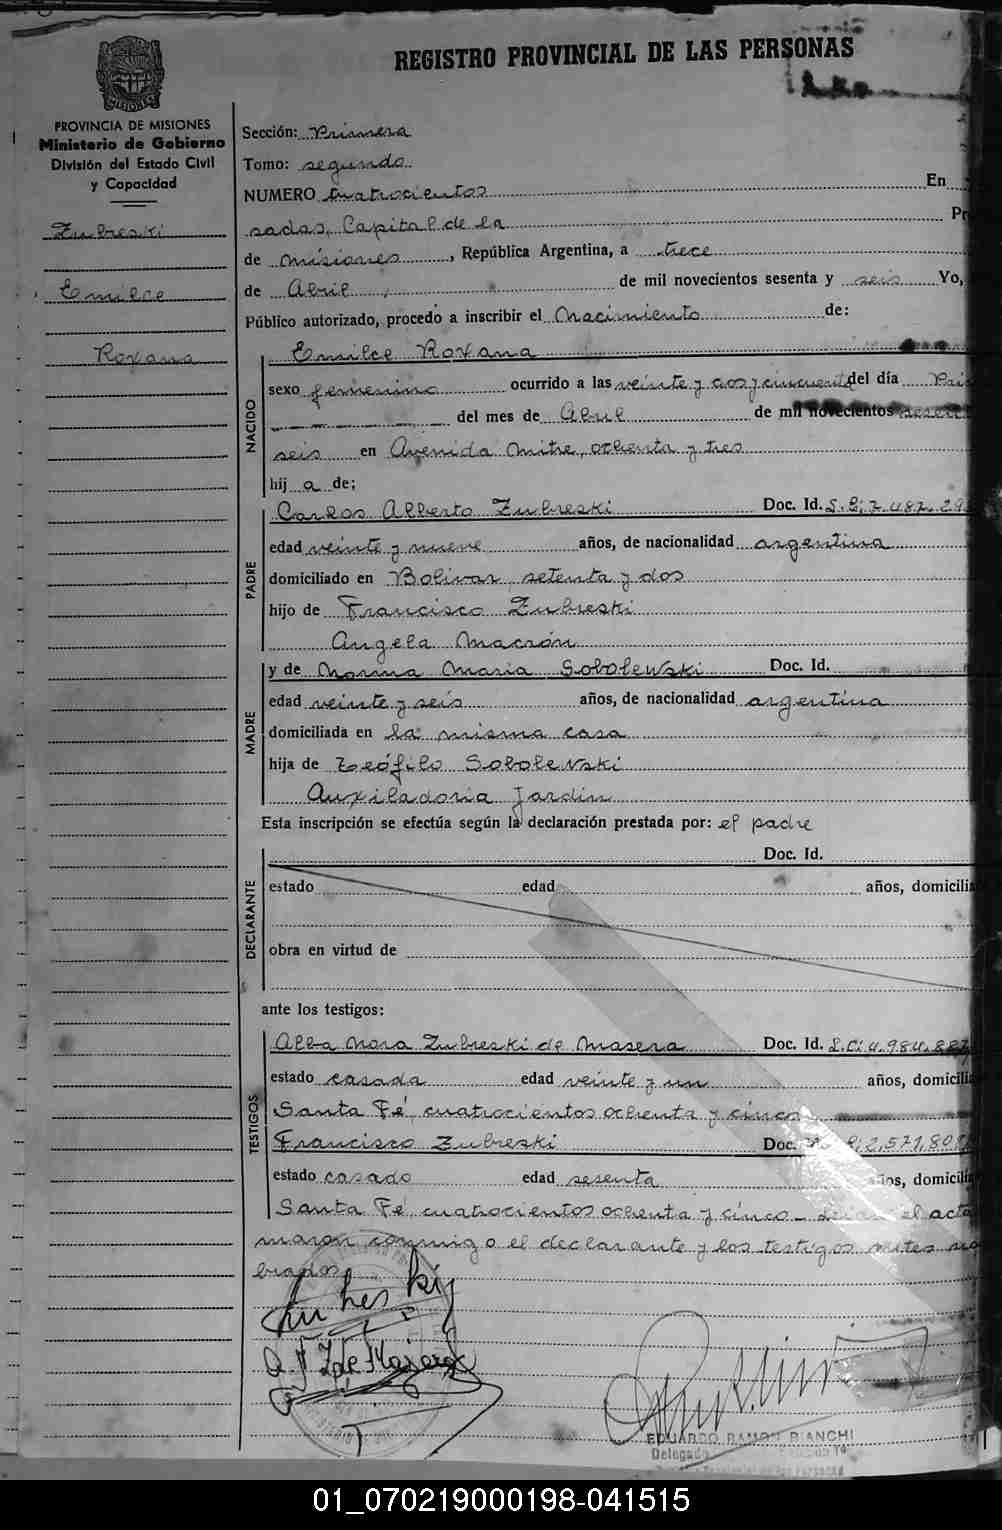 REGISTRO PROVINCIAL DE LAS PERSONAS
PROVINCIA DE MISIONES
Ministerio de Gobierno
División del Estado Civil
y Capacidad
Zubreski
Emilce
Roxana
Sección: Primera
Tomo: segundo
NUMERO cuatrocientos En
sadas, Capital de la
de Misiones, República Argentina, a trece
de Abril de mil novecientos sesenta y seis Yo,
Público autorizado, procedo a inscribir el Nacimiento de:
NACIDO
Emilce Roxana
sexo femenino ocurrido a las veinte y dos y cincuenta del día
del mes de Abril de mil novecientos
seis en Avenida Mitre, ochenta y tres
hij a de;
PADRE
Carlos Alberto Zubreski Doc. Id. 7.487.29
edad veinte y nueve años, de nacionalidad argentina
domiciliado en Bolivar setenta y dos
hijo de Francisco Zubreski
Angela Macrón
MADRE
y de Norma Maria Sobolewski Doc. Id.
edad veinte y seis años, de nacionalidad argentina
domiciliada en la misma casa
hija de Teófilo Sobolewski
Auxiladoria Jardin
Esta inscripción se efectúa según la declaración prestada por: el padre
DECLARANTE
Doc. Id.
estado edad años, domicilia
obra en virtud de
ante los testigos:
TESTIGOS
Alba Nora Zubreski de Masera Doc. Id. L.C; 4.984.887
estado casada edad veinte y un años, domicili
Santa Fé, cuatrocientos ochenta y cinco
Francisco Zubreski Doc. 2.571.80
estado casado edad sesenta años, domicili
Santa Fé cuatrocientos ochenta y cinco el acta
maron conmigo el declarante y los testigos antes no
brados
Zubreski
EDUARDO RAMON BIANCHI
Delegado
01_070219000198-041515